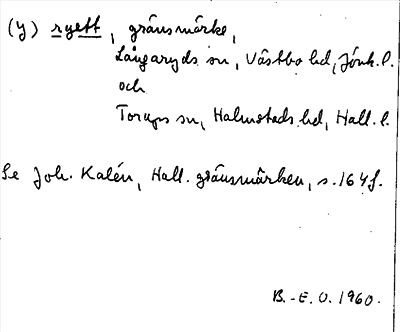 (y) ryett, gränsmärke,
Långaryds sn, Västbo hd, Jönk. l.
och
Torups sn, Halmstads hd, Hall. l.
Se Joh. Kalén, Hall. gränsmärken, s. 164 f.
B.-E. O. 1960.